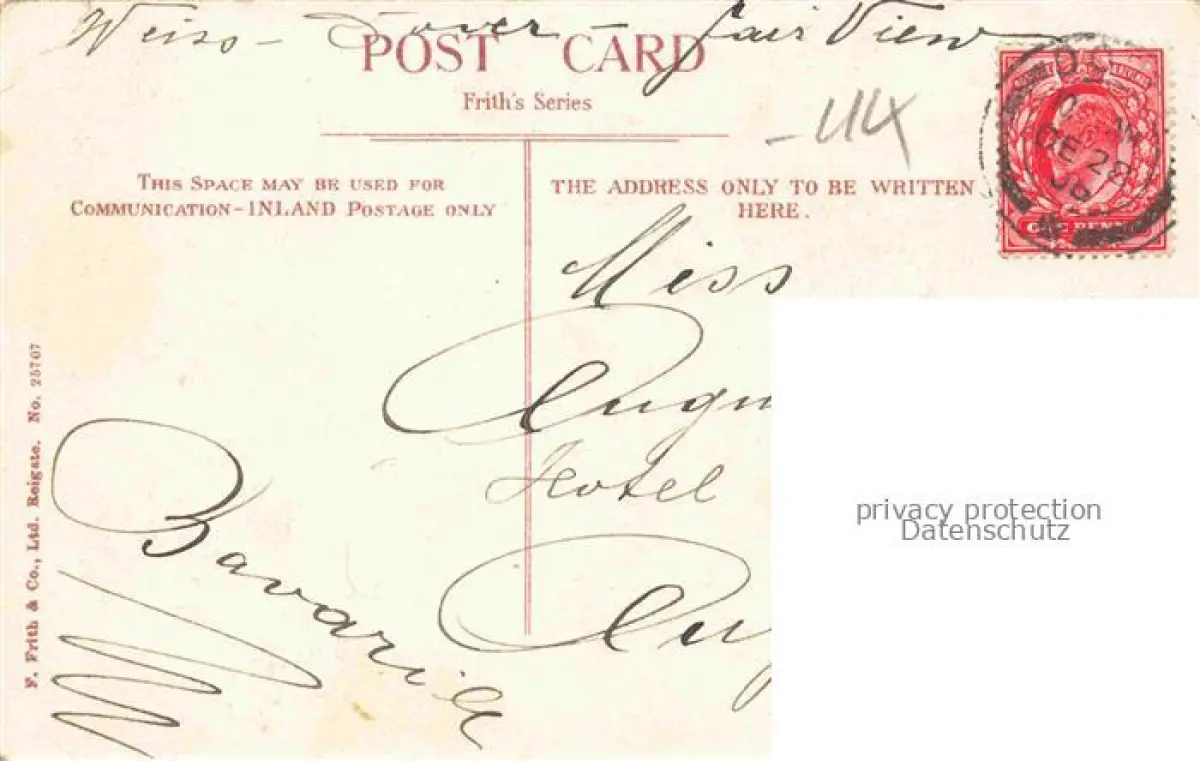 Weiss - Dover - Fair View
POST CARD
Frith's Series
THIS SPACE MAY BE USED FOR
COMMUNICATION-INLAND POSTAGE ONLY
THE ADDRESS ONLY TO BE WRITTEN
HERE.
DE 28
06
ONE PENNY
Miss
Augu
Hotel
Aug
Bavaria
F. Frith & Co., Ltd. Reigate. No. 25707
privacy protection
Datenschutz